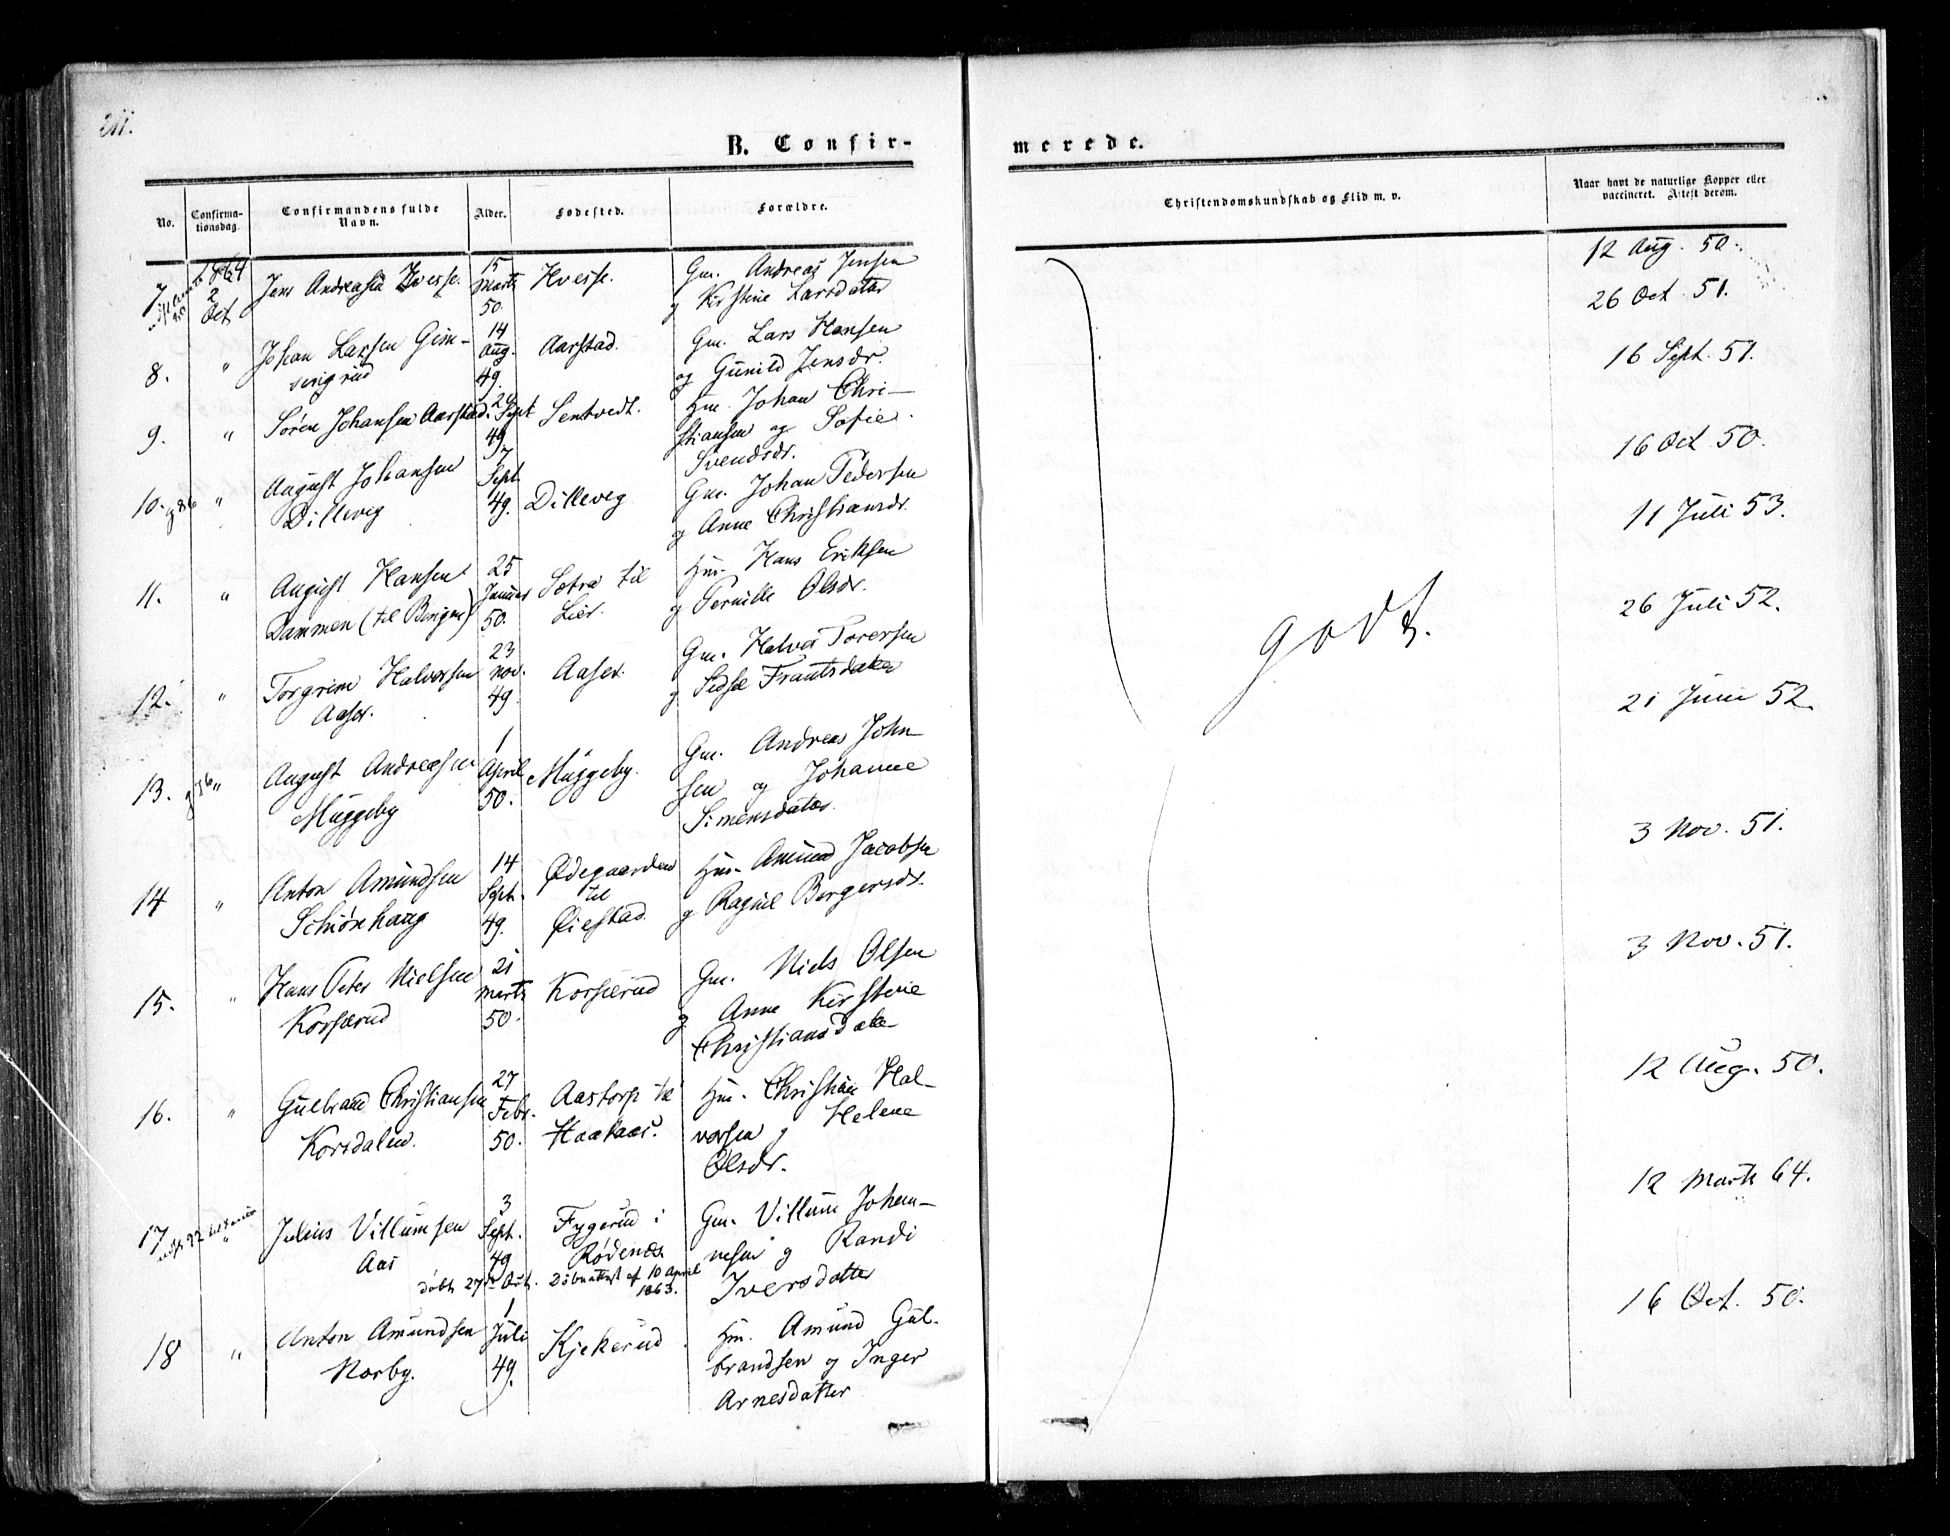 B. Confir-
merede.
No.
Confirma-
tionsdag.
Confirmandens fulde
Navn.
Alder.
Fødested.
Forældre.
Christendomskundskab og Flid m. v.
Naar havt de naturlige Kopper eller
vaccineret. Attest derom.
7.
1864
2
Oct
Jens Andreasen Hvesse.
15
Marts
50.
Hvesse.
Gm. Andreas Jensen
og Kirstine Larsdatter
12 Aug. 50.
8.
"
Johan Larsen Gim-
serigrud
14
Aug.
49.
Aarstad.
Gm. Lars Hansen
og Gunild Jensdr.
26 Oct. 51.
9.
"
Sören Johansen Aarstad.
29
Sept
49.
Sentvedt.
Hm. Johan Chri-
stiansen og Sofie
Svendsdr.
16 Sept. 51.
10.
"
August Johansen
Dillevig
7
Sept.
49.
Dilleveg
Gm. Johan Pedersen
og Anne Christiansdr.
16 Oct 50.
11.
"
August Hansen
Dammen (til Bingen)
25
Januar
50.
Sætra til
Lier.
Hm. Hans Eriksen
og Pernille Olsdr.
11 Juli 53.
12.
"
Torgrim Halvorsen
Aaser.
23
Nov.
49.
Aaser.
Gm. Halvor Torersen
og Sidse Frantsdatter
26 Juli 52.
13.
"
August Andreasen
Muggeby
1
April
50.
Muggeby.
Gm. Andreas John-
sen og Johanne
Simensdatter.
21 Juni 52.
14
"
Anton Amundsen
Schiønhaug
14
Sept.
49.
Ødegaarden
til
Øiestad.
Hm. Amund Jacobsen
og Ragnil Borgersdr.
3 Nov. 51.
15.
"
Hans Peter Nielsen
Korsærud
21
Marts
50.
Korsærud
Gm. Niels Olsen
og Anne Kirstine
Christiansdatter
3 Nov. 51.
16.
"
Gulbrand Christiansen
Korsdalen.
27
Febr.
50.
Aastorp til
Haakaas.
Hm. Christian Hal-
vorsen og Helene
Olsdr.
12 Aug. 50.
17
"
Julius Villumsen
Aas
3
Sept.
49
Fygerud i
Rødenæs
Gm. Villum Johan-
nesen og Randi
Iversdatter
døbt 27de Oct. Døbeattest af 10 April
1863.
12 Marts 64.
18
"
Anton Amundsen
Norby.
1
Juli
49.
Kjekerud
Hm. Amund Gul-
brandsen og Inger
Arnesdatter
16 Oct. 50.
godt.